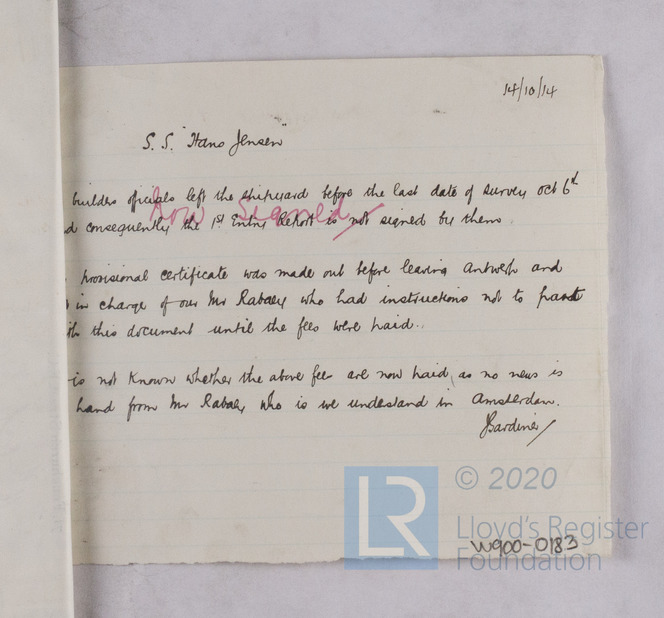 14/10/14
S.S. "Hans Jensen"
builders officials left the shipyard before the last date of survey Oct 6th
Now Signed
d consequently the 1st Entry Report is not signed by them.
provisional certificate was made out before leaving Antwerp and
in charge of our Mr Rabaey who had instructions not to part
th this document until the fees were paid.
is not known whether the above fee are now paid, as no news is
hand from Mr Rabaey who is we understand in Amsterdam.
JGardiner
LR
© 2020
Lloyd's Register
Foundation
W900-0183